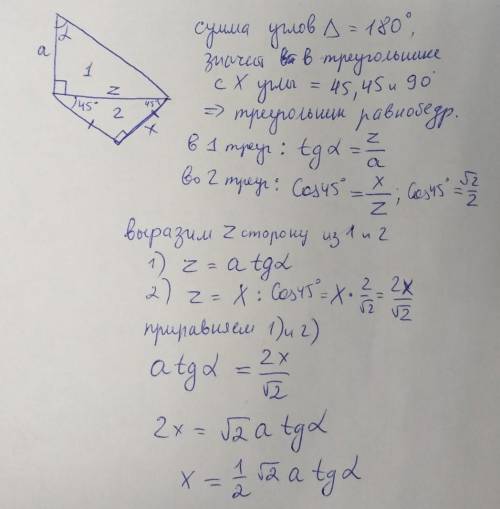 сумма углов Δ = 180°,
значит в треугольнике
с X углы = 45, 45 и 90°
⇒ треугольник равнобедр.
в 1 треуг: tgα = z/a
во 2 треуг: Cos45° = x/z; Cos45° = √2/2
a
α
1
z
45°
2
45°
x
x
выразим z сторону из 1 и 2
1) z = a tgα
2) z = X : Cos45° = X · 2/√2 = 2x/√2
приравняем 1) и 2)
a tgα = 2x/√2
2x = √2 a tgα
x = 1/2 √2 a tgα